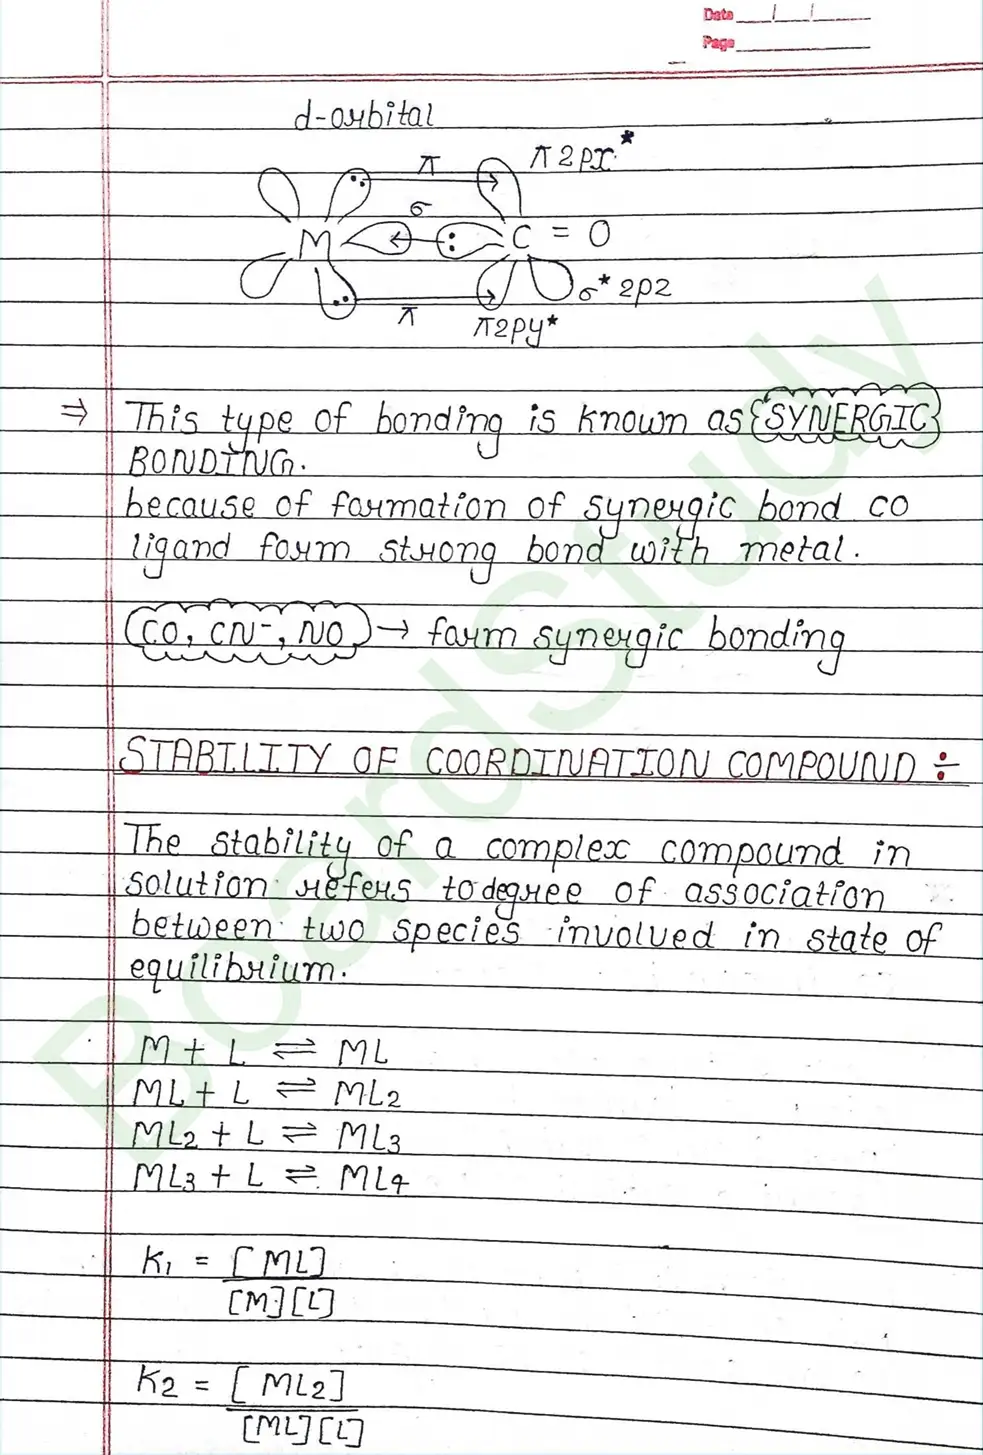 Date
Page
d-orbital
π
π2px*
σ
M
C = O
σ* 2pz
π
π2py*
⇒ This type of bonding is known as SYNERGIC
BONDING.
because of formation of synergic bond CO
ligand form strong bond with metal.
CO, CN⁻, NO → form synergic bonding
STABILITY OF COORDINATION COMPOUND ÷
The stability of a complex compound in
solution refers to degree of association
between two species involved in state of
equilibrium.
M + L ⇌ ML
ML + L ⇌ ML2
ML2 + L ⇌ ML3
ML3 + L ⇌ ML4
K1 = [ML]
[M][L]
K2 = [ML2]
[ML][L]
BoardStudy